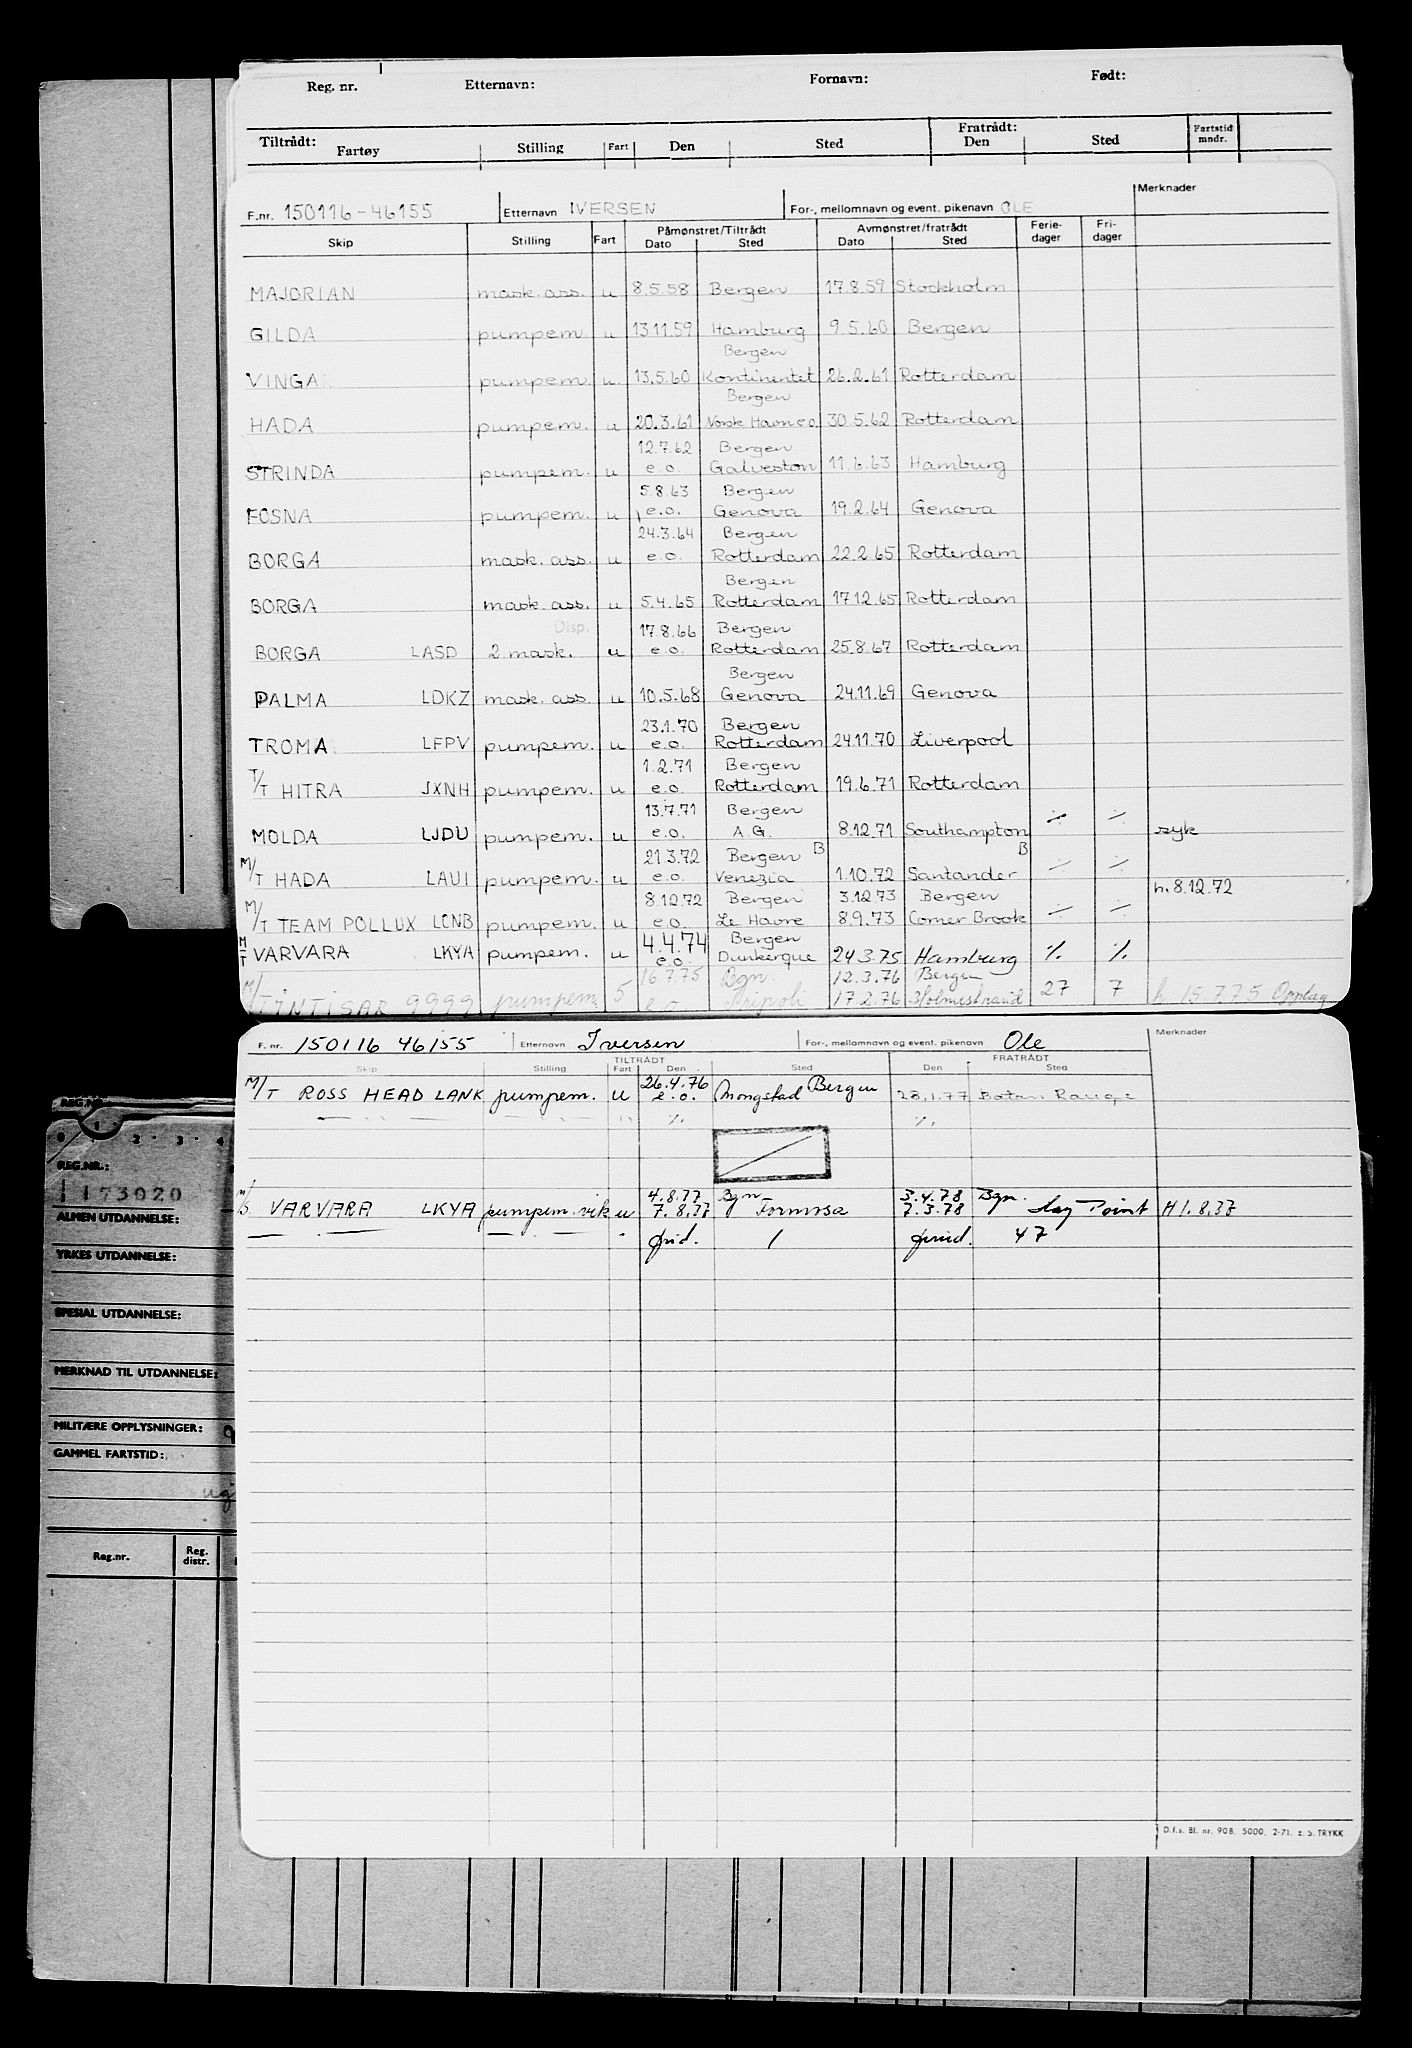 Reg. nr. Etternavn: Fornavn: Født:
Tiltrådt: Fratrådt:
Fartøy Stilling Fart Den Sted Den Sted Fartstid mndr.
F.nr. 150116-46155 Etternavn IVERSEN For-, mellomnavn og event. pikenavn OLE Merknader
Påmønstret/Tiltrådt Avmønstret/fratrådt Ferie- Fri-
Skip Stilling Fart Dato Sted Dato Sted dager dager
MAJORIAN mask. ass. u 8.5.58 Bergen 17.8.59 Stockholm
GILDA pumpem. u 13.11.59 Hamburg 9.5.60 Bergen
Bergen
VINGA pumpem. u. 13.5.60 Kontinentet 26.2.61 Rotterdam
Bergen
HADA pumpem. u 20.3.61 Norsk Havn e.o. 30.5.62 Rotterdam
12.7.62 Bergen
STRINDA pumpem. u e.o. Galveston 11.6.63 Hamburg
5.8.63 Bergen
FOSNA pumpem. u e.o. Genova 19.2.64 Genova
24.3.64 Bergen
BORGA mask. ass. u e.o. Rotterdam 22.2.65 Rotterdam
Bergen
BORGA mask. ass. u 5.4.65 Rotterdam 17.12.65 Rotterdam
Disp. 17.8.66 Bergen
BORGA LASD 2 mask. u e.o. Rotterdam 25.8.67 Rotterdam
Bergen
PALMA LDKZ mask. ass. u 10.5.68 Genova 24.11.69 Genova
23.1.70 Bergen
TROMA LFPV pumpem. u e.o. Rotterdam 24.11.70 Liverpool
1.2.71 Bergen
T/T HITRA JXNH pumpem. u e.o. Rotterdam 19.6.71 Rotterdam
13.7.71 Bergen
MOLDA LJDU pumpem. u e.o. A.G. 8.12.71 Southampton ·/· ·/· syk
21.3.72 Bergen B B
M/T HADA LAUI pumpem. u e.o. Venezia 1.10.72 Santander ·/· ·/·
8.12.72 Bergen 3.12.73 Bergen h. 8.12.72
M/T TEAM POLLUX LCNB pumpem. u e.o. Le Havre 8.9.73 Corner Brook ·/· ·/·
4.4.74 Bergen
M/T VARVARA LKYA pumpem. u e.o. Dunkerque 24.3.75 Hamburg ·/. ·/.
16.7.75 Bgn. 12.3.76 Bergen
M/T INTISAR 9999 pumpem. 5 e.o. Tripoli 17.2.76 Holmestrand 27 7 h 15.7.75 Opplag
F. nr. 150116 46155 Etternavn Iversen For-, mellomnavn og event. pikenavn Ole Merknader
TILTRÅDT FRATRÅDT
Skip Stilling Fart Den Sted Den Sted
26.4.76
M/T ROSS HEAD LANK pumpem. u e.o. Mongstad Bergen 28.1.77
·/. ·/.
4.8.77 Bgn 3.4.78 Bgn.
M/S VARVARA LKYA pumpem. vik u 7.8.77 Formosa 7.3.78 Point H 1.8.77
1 47
D.f.s. Bl. nr. 908. 5000. 2-71. E. S. TRYKK
REG.NR.:
0 1 2 · 3 · 4
REG.NR.:
173020
ALMEN UTDANNELSE:
YRKES UTDANNELSE:
SPESIAL UTDANNELSE:
MERKNAD TIL UTDANNELSE:
MILITÆRE OPPLYSNINGER: 9
GAMMEL FARTSTID:
ug
Reg.nr. Reg. distr.